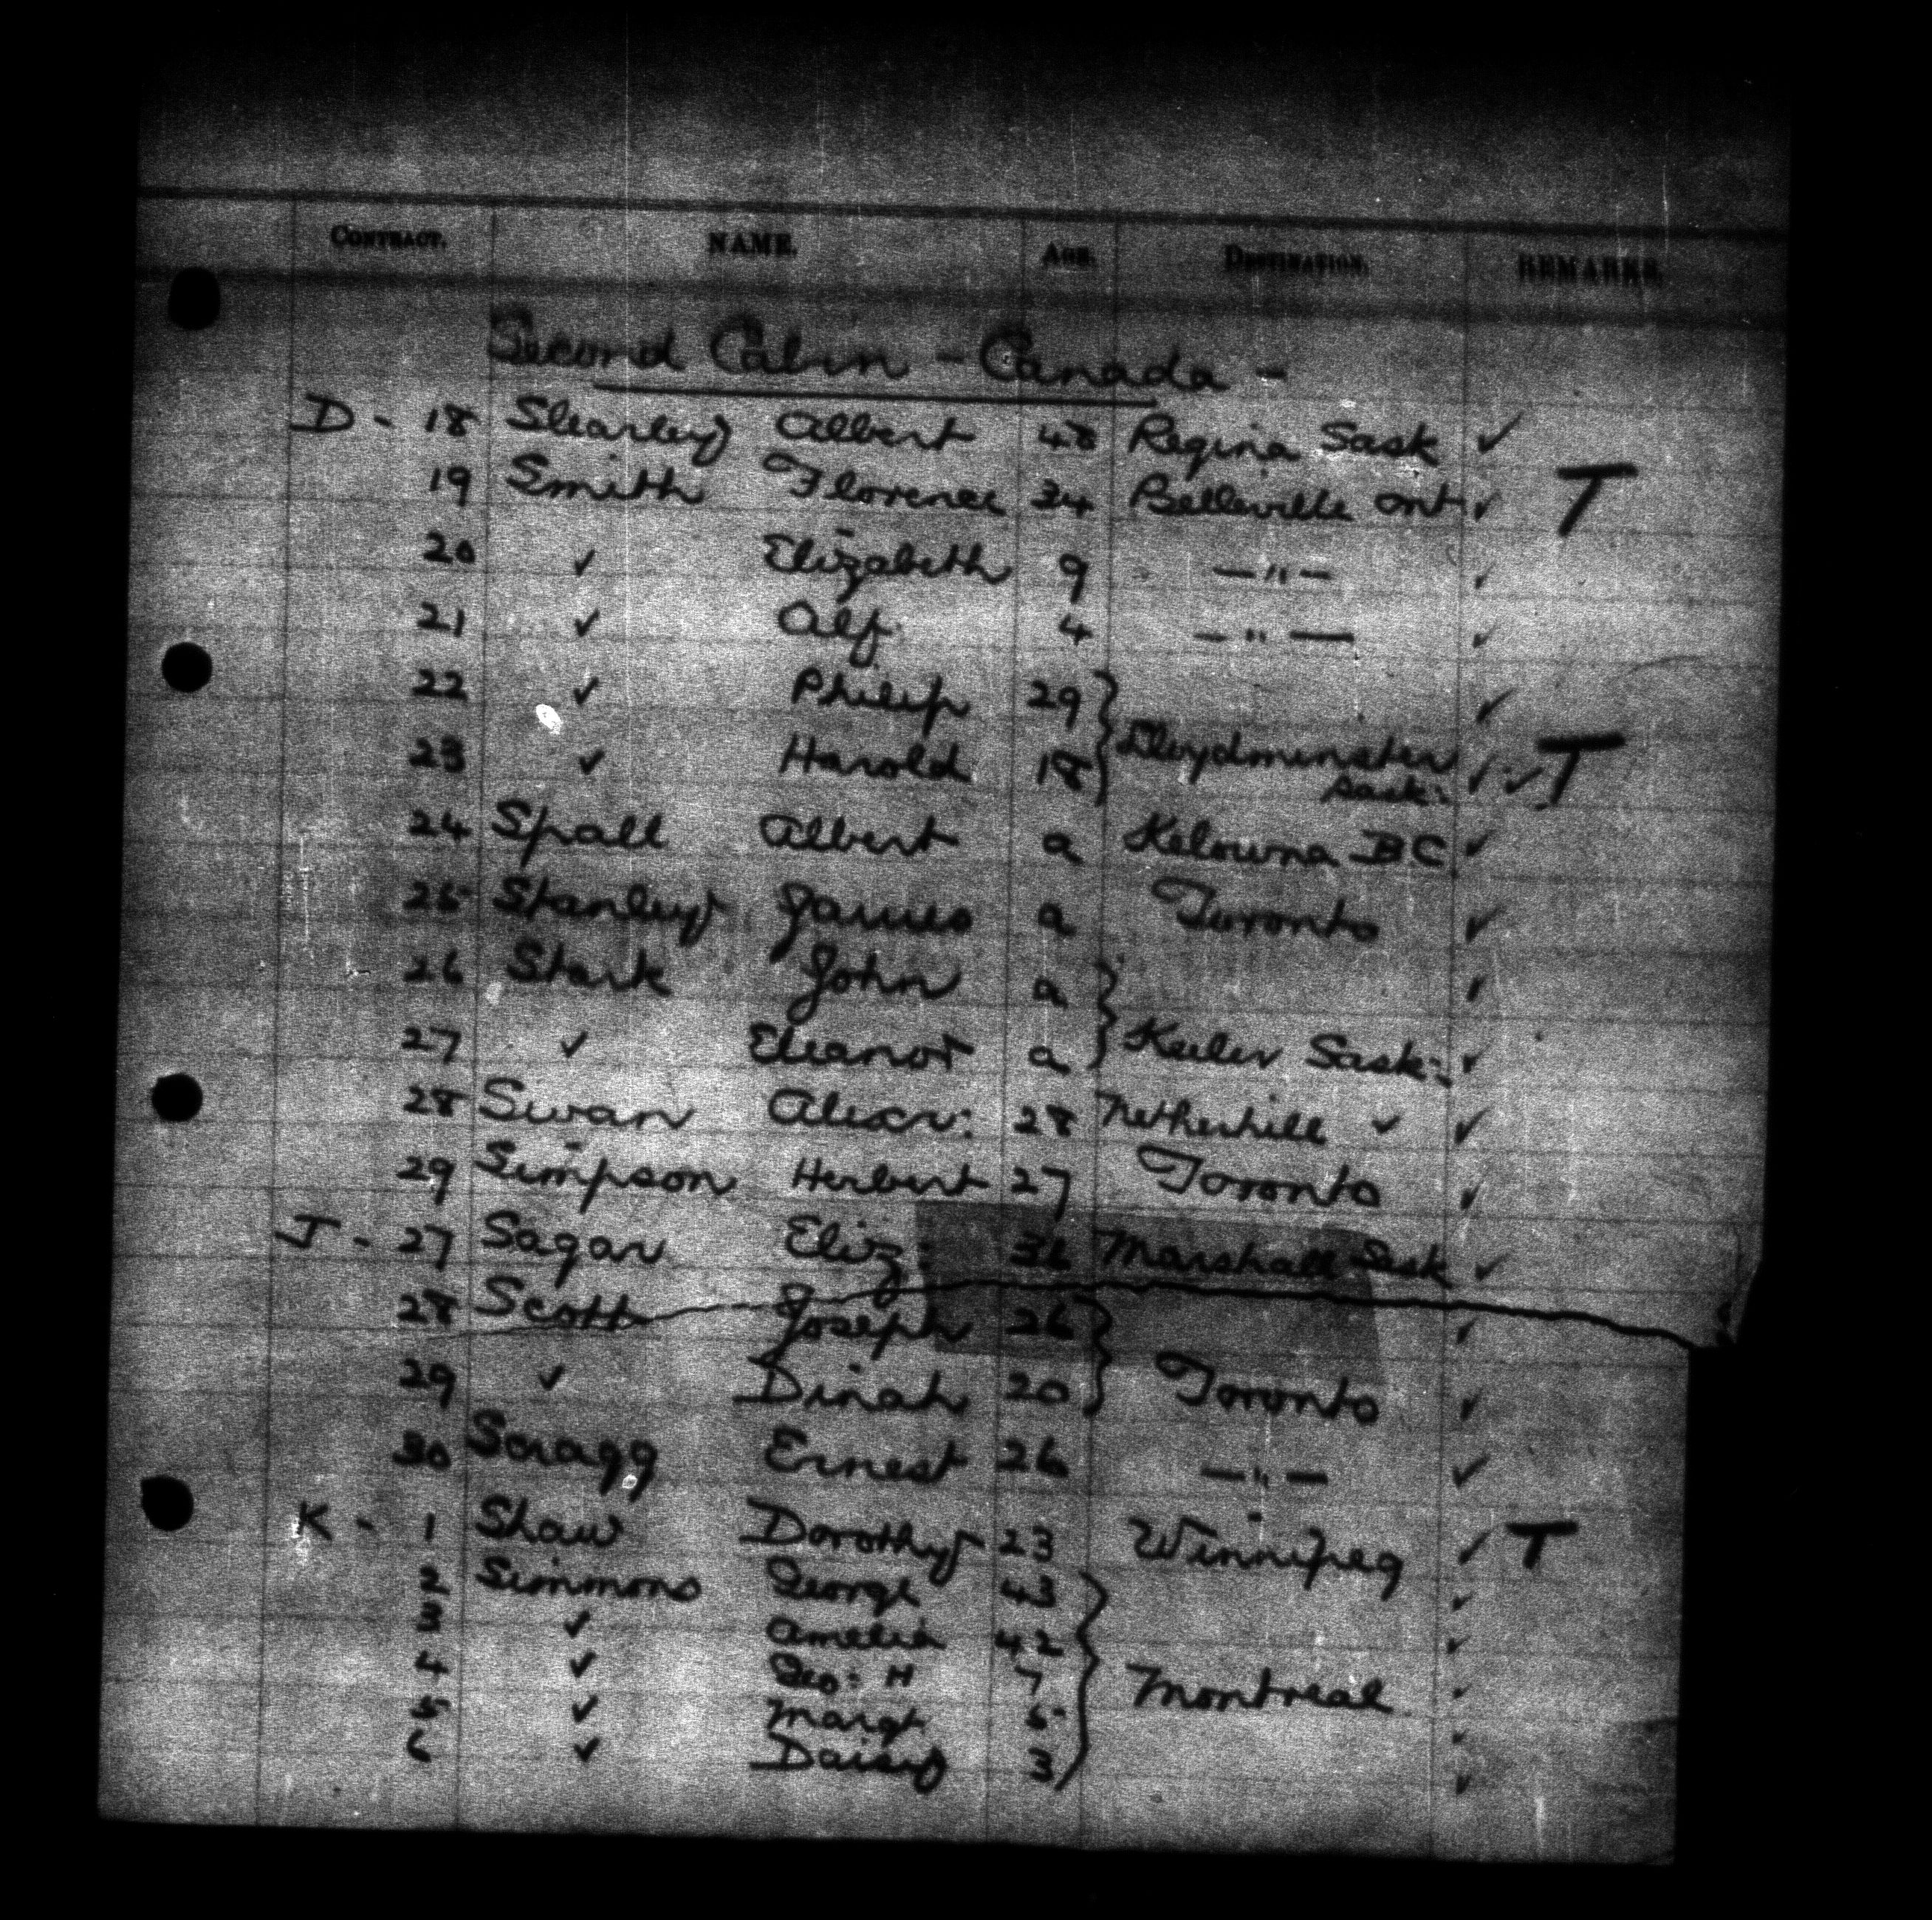 CONTRACT. NAME. AGE. DESTINATION. REMARKS.
Second Cabin - Canada -
D - 18 Slearley Albert 48 Regina Sask ✓
19 Smith Florence 34 Belleville Ont ✓ T
20 ✓ Elizabeth 9 —"— ✓
21 ✓ Alf 4 —"— ✓
22 ✓ Philip 29 ✓
23 ✓ Harold 18 Lloydminster Sask: ✓ ✓ T
24 Spall Albert a Kelowna BC ✓
25 Stanley James a Toronto ✓
26 Stark John a ✓
27 ✓ Eleanor a Keeler Sask: ✓
28 Swan Alexr: 28 Netherhill ✓ ✓
29 Simpson Herbert 27 Toronto ✓
J - 27 Sagar Eliz: 36 Marshall Sask ✓
28 Scott Joseph 26 ✓
29 ✓ Dinah 20 Toronto ✓
30 Scragg Ernest 26 —"— ✓
K - 1 Shaw Dorothy 23 Winnipeg ✓ T
2 Simmons George 43 ✓
3 ✓ Amelia 42 ✓
4 ✓ Geo: H 7 Montreal ✓
5 ✓ Margt 5 ✓
6 ✓ Daisy 3 ✓